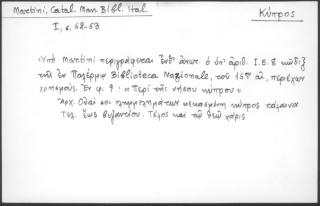 Martini, Catal. Man. Bibl. Ital.
Κύπρος
I, σ. 52-53
Ὑπὸ Martini περιγράφεται ὁ ὑπ' ἀριθ. I.E.8 κῶδιξ
τῆς ἐν Παλέρμῳ Biblioteca Nazionale, τοῦ 15ου αἰ, περιέχων
χρησμούς. Ἐν φ. 9 : «Περὶ τῆς νήσου κύπρου»
Ἀρχ. Οὐαί σοι κύπρος
Τελ. ἕως βυζαντίου. Τέλος καὶ τῷ θεῷ χάρις